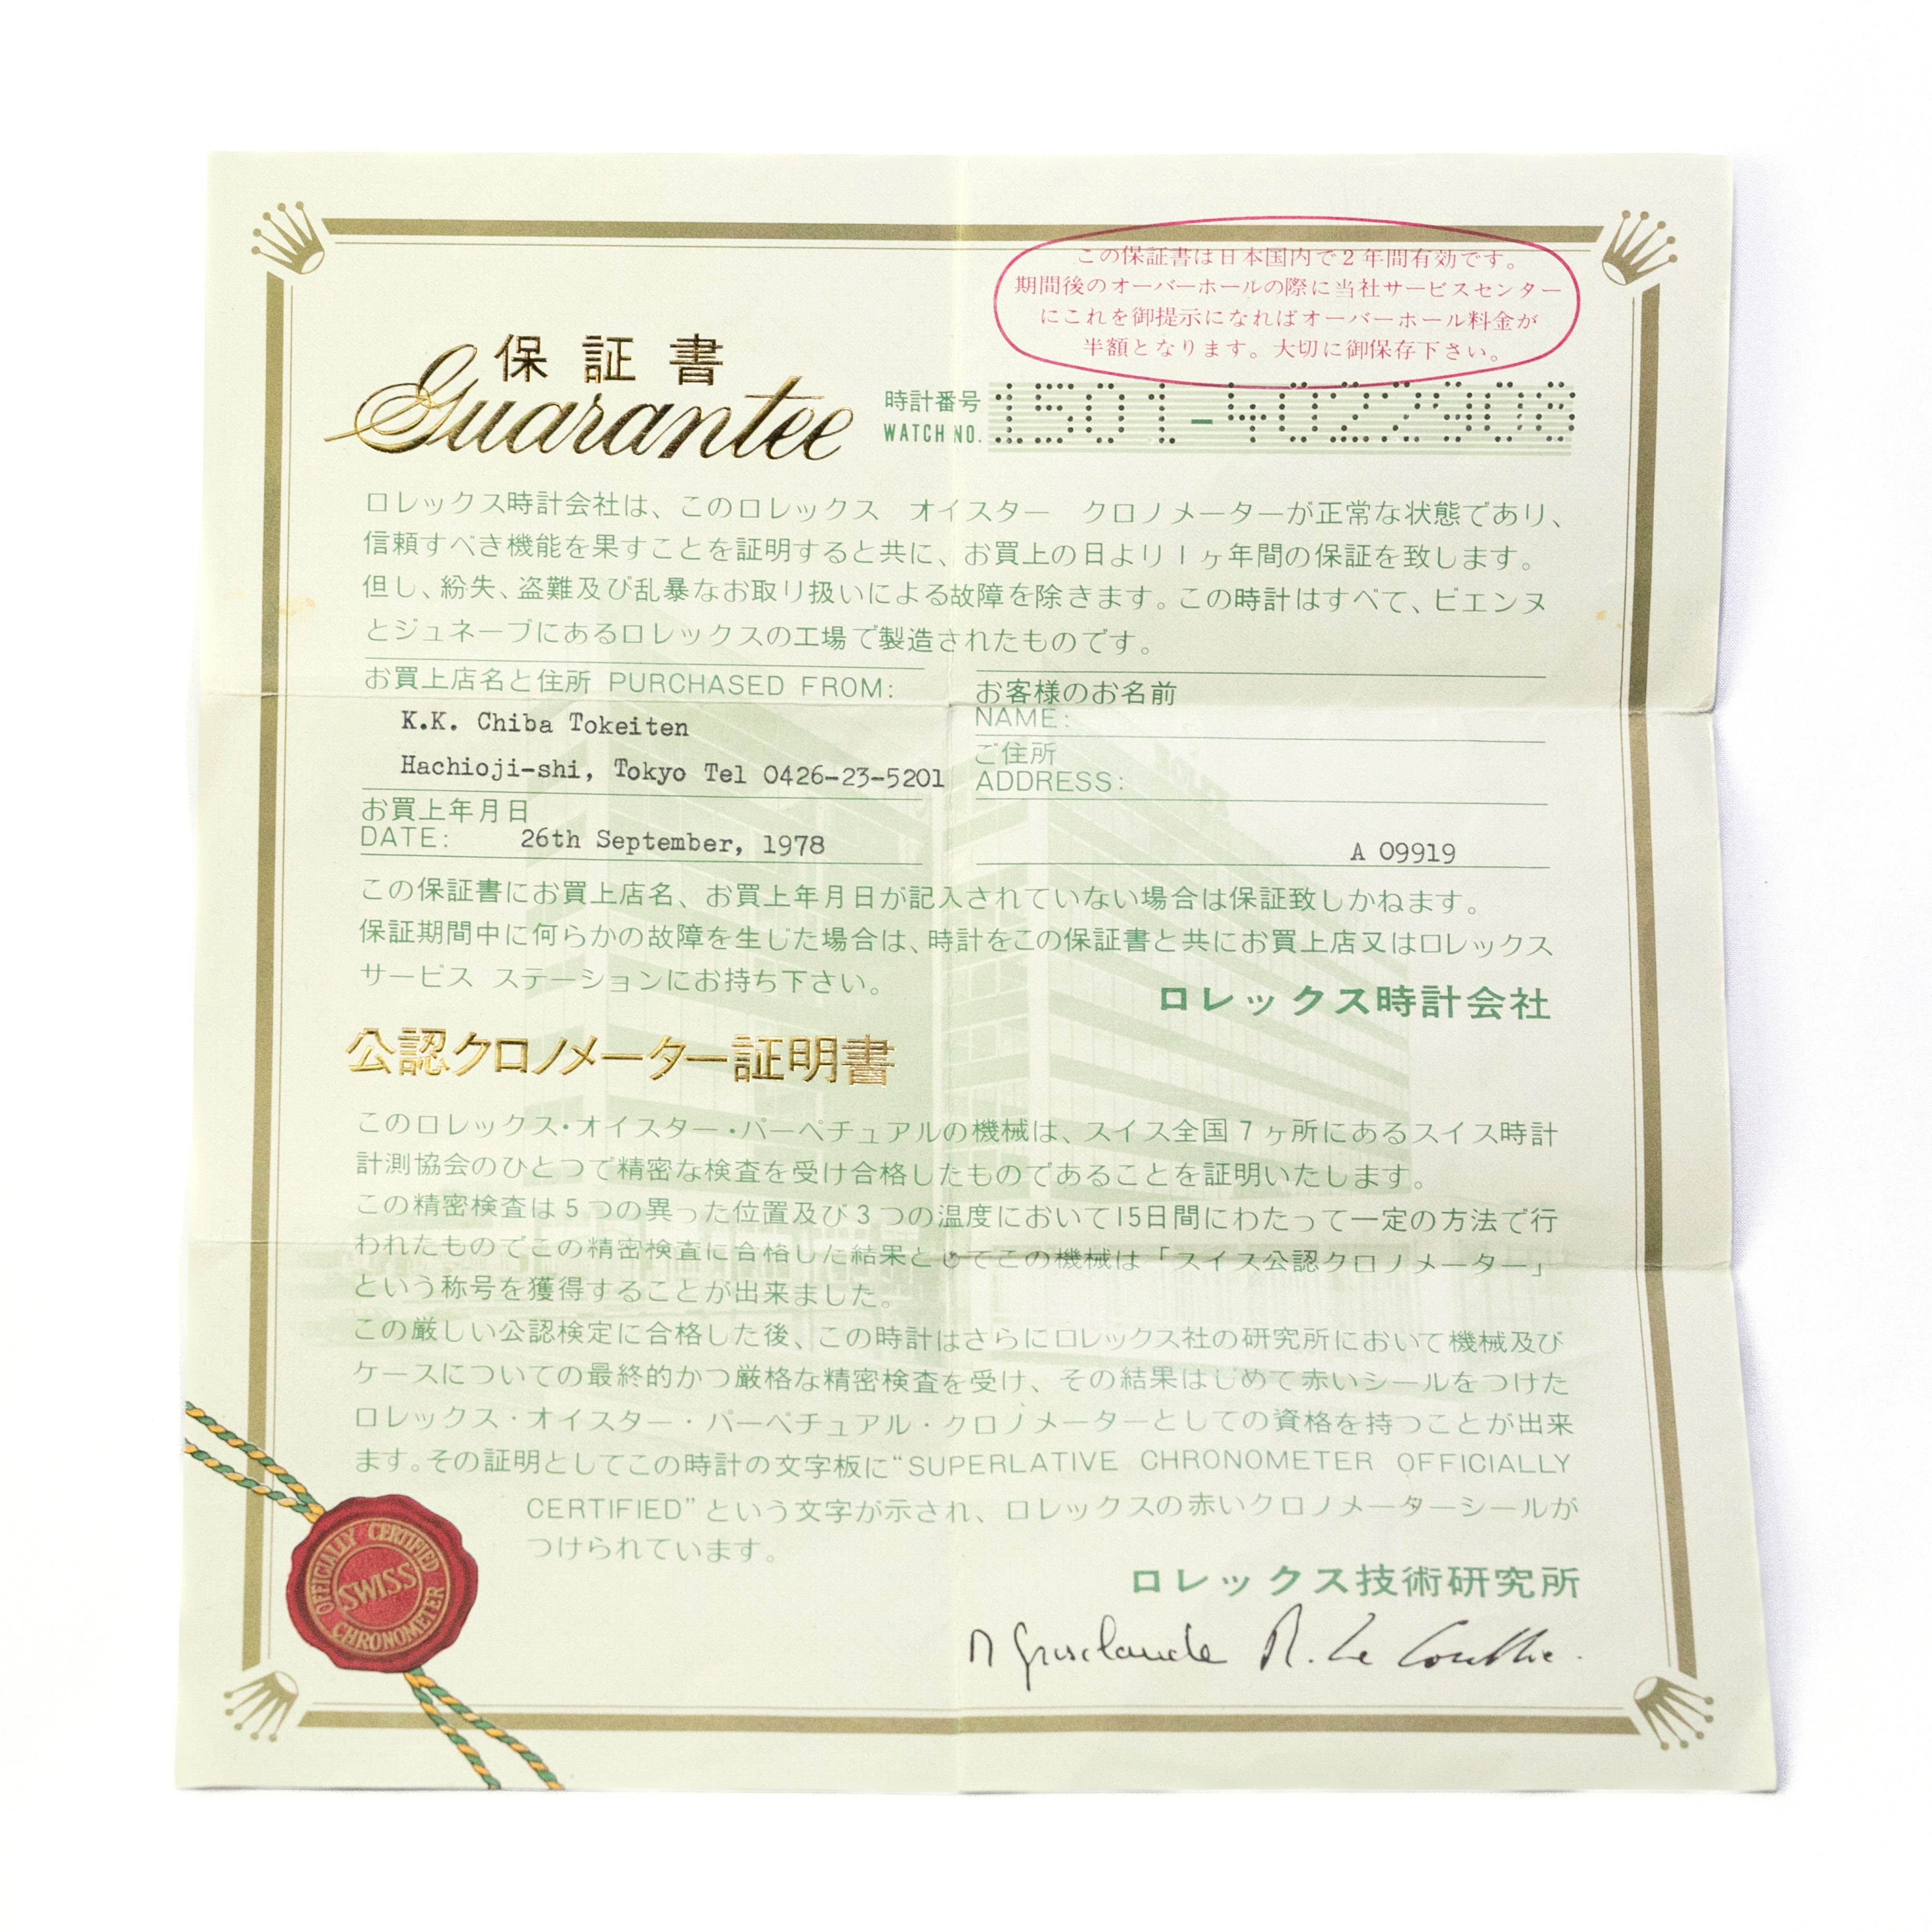 この保証書は日本国内で2年間有効です。
期間後のオーバーホールの際に当社サービスセンター
にこれを御提示になればオーバーホール料金が
半額となります。大切に御保存下さい。
保証書
Guarantee
時計番号
WATCH NO.
1501-4022908
ロレックス時計会社は、このロレックス オイスター クロノメーターが正常な状態であり、
信頼すべき機能を果すことを証明すると共に、お買上の日より1ヶ年間の保証を致します。
但し、紛失、盗難及び乱暴なお取り扱いによる故障を除きます。この時計はすべて、ビエンヌ
とジュネーブにあるロレックスの工場で製造されたものです。
お買上店名と住所 PURCHASED FROM:
K.K. Chiba Tokeiten
Hachioji-shi, Tokyo Tel 0426-23-5201
お買上年月日
DATE: 26th September, 1978
お客様のお名前
NAME:
ご住所
ADDRESS:
A 09919
この保証書にお買上店名、お買上年月日が記入されていない場合は保証致しかねます。
保証期間中に何らかの故障を生じた場合は、時計をこの保証書と共にお買上店又はロレックス
サービス ステーションにお持ち下さい。
ロレックス時計会社
公認クロノメーター証明書
このロレックス・オイスター・パーペチュアルの機械は、スイス全国7ヶ所にあるスイス時計
計測協会のひとつで精密な検査を受け合格したものであることを証明いたします。
この精密検査は5つの異った位置及び3つの温度において15日間にわたって一定の方法で行
われたものでこの精密検査に合格した結果としてこの機械は「スイス公認クロノメーター」
という称号を獲得することが出来ました。
この厳しい公認検定に合格した後、この時計はさらにロレックス社の研究所において機械及び
ケースについての最終的かつ厳格な精密検査を受け、その結果はじめて赤いシールをつけた
ロレックス・オイスター・パーペチュアル・クロノメーターとしての資格を持つことが出来
ます。その証明としてこの時計の文字板に“SUPERLATIVE CHRONOMETER OFFICIALLY
CERTIFIED”という文字が示され、ロレックスの赤いクロノメーターシールが
つけられています。
OFFICIALLY CERTIFIED
SWISS
CHRONOMETER
ロレックス技術研究所
R. Le Coultre.